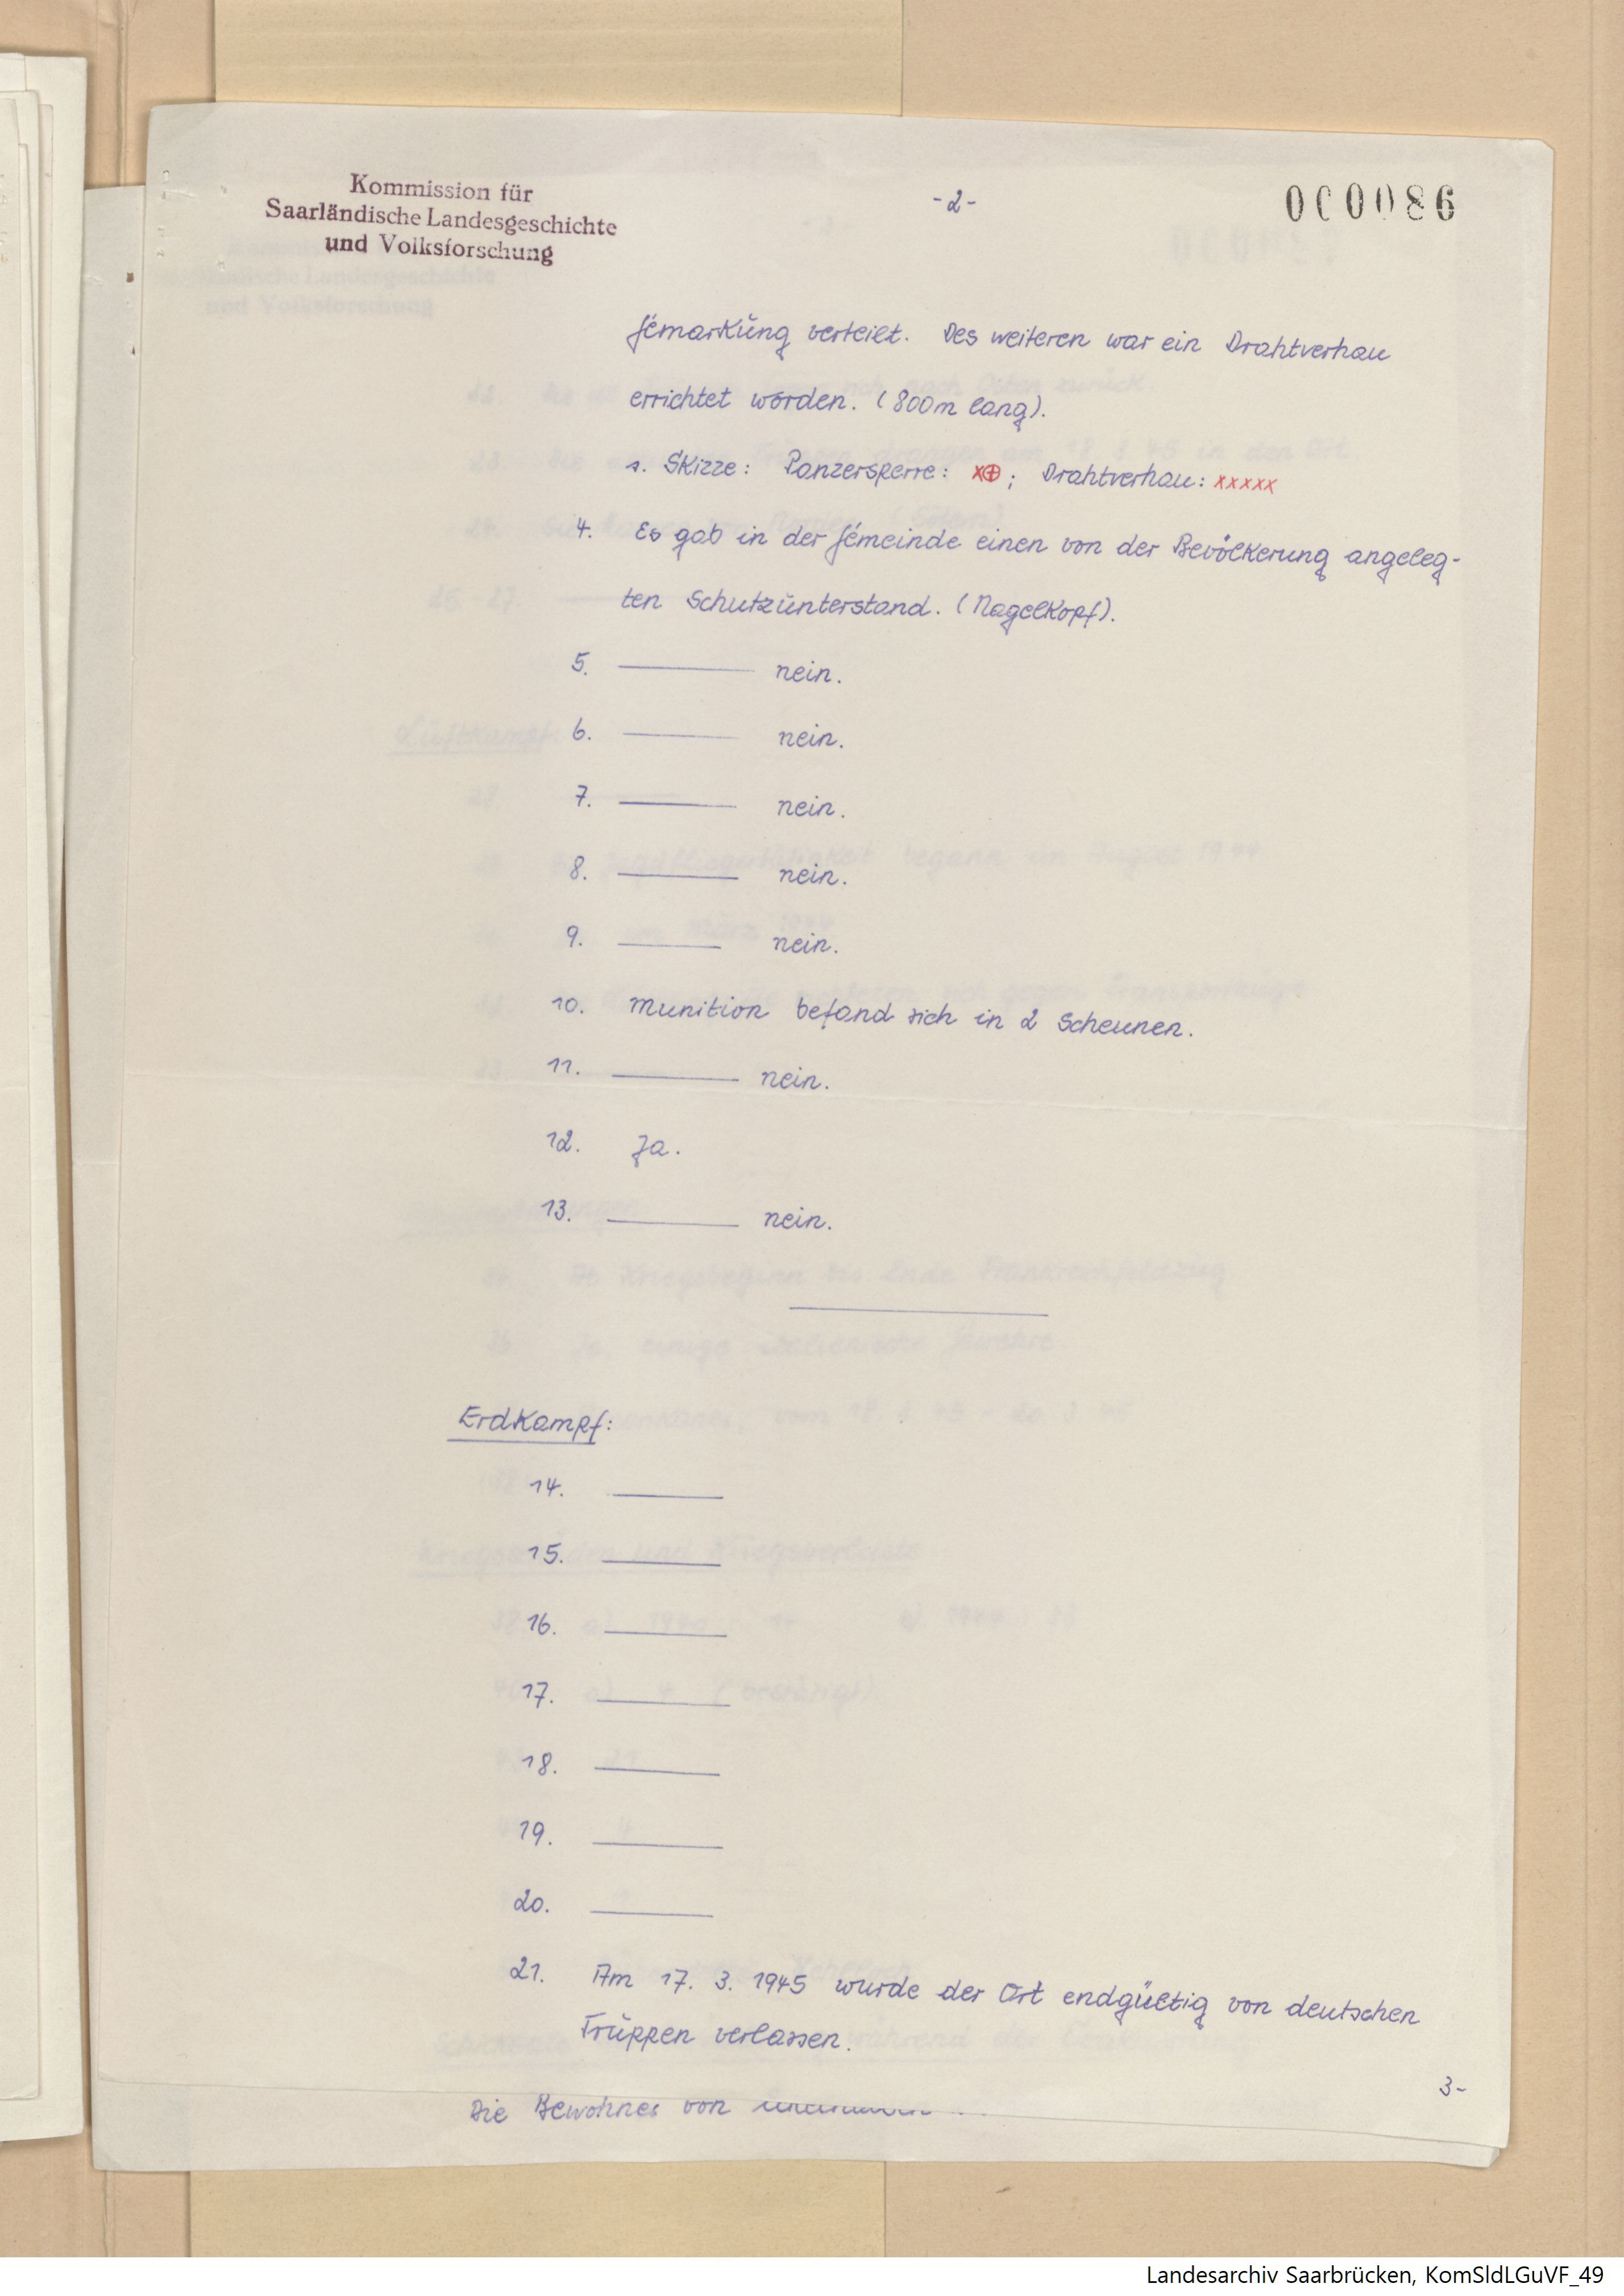 Kommission für
Saarländische Landesgeschichte
und Volksforschung
-2-
000086
Gemarkung verteilt. Des weiteren war ein Drahtverhau
errichtet worden. (800m lang).
s. Skizze: Panzersperre: x⊕; Drahtverhau: xxxxx
4. Es gab in der Gemeinde einen von der Bevölkerung angeleg-
ten Schutzunterstand. (Nagelkopf).
5. ——— nein.
6. ——— nein.
7. ——— nein.
8. ——— nein.
9. ——— nein.
10. Munition befand sich in 2 Scheunen.
11. ——— nein.
12. Ja.
13. ——— nein.
Erdkampf:
14. ———
15. ———
16. ———
17. ———
18. ———
19. ———
20. ———
21. Am 17. 3. 1945 wurde der Ort endgültig von deutschen
Truppen verlassen.
3-
Die Bewohner von
Landesarchiv Saarbrücken, KomSldLGuVF_49